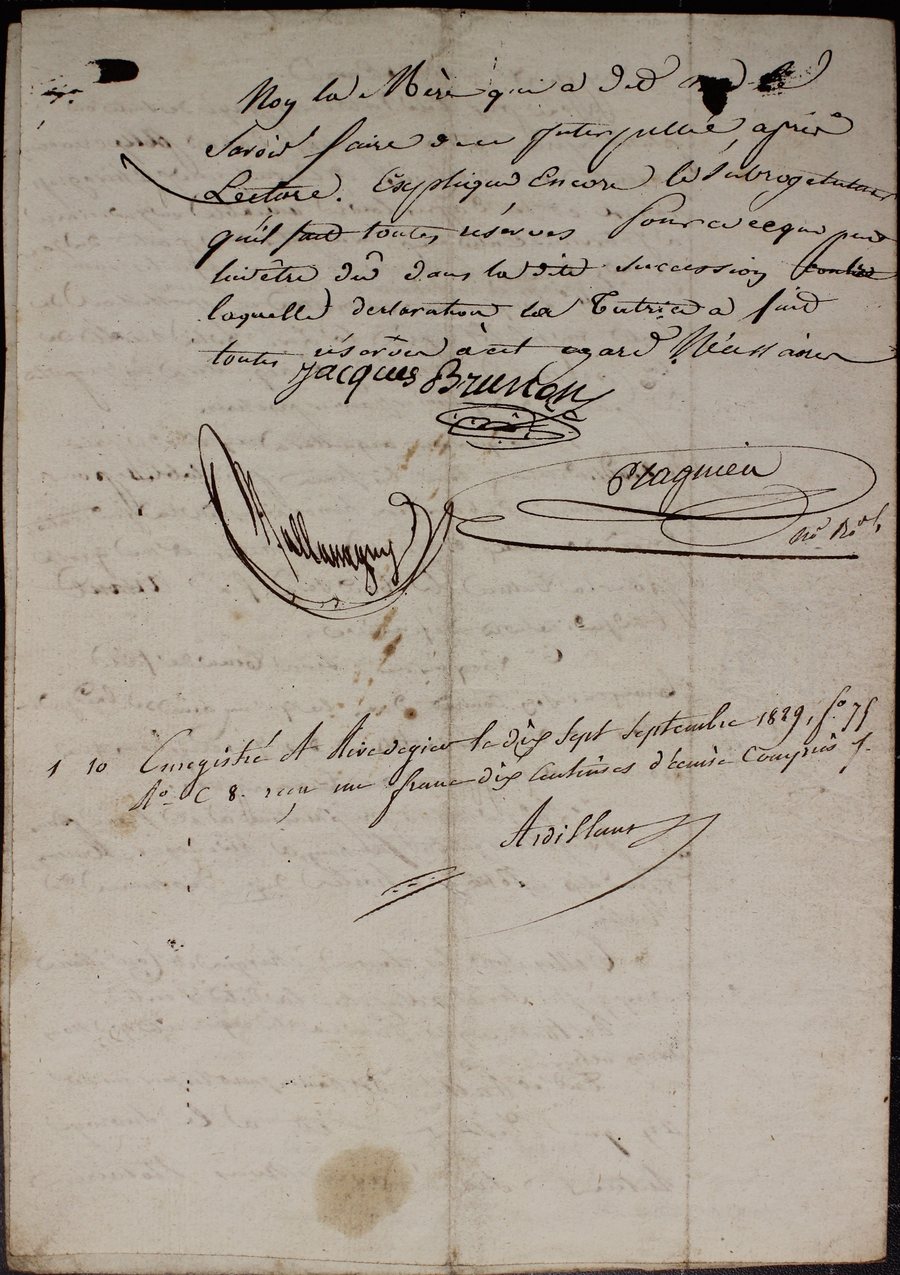 Noy la Mère qui a dit ne le
Savoir faire de ce Interpellé, après
Lecture. Explique Encore le Subrogetuteur
qu'il fait toutes réserves Pour ce que peut
lui être dû dans la dite succession contre
laquelle declaration la Tutrice a fait
toutes réserves à cet egard Nécessaires
Jacques Brunon
Pragnieu
No. Ral.
1 10 Enregistré A Rivedegier le dix sept septembre 1829, fo. 75
Ro C 8. reçu un franc dix Centimes décime Compris f.
Ardillant